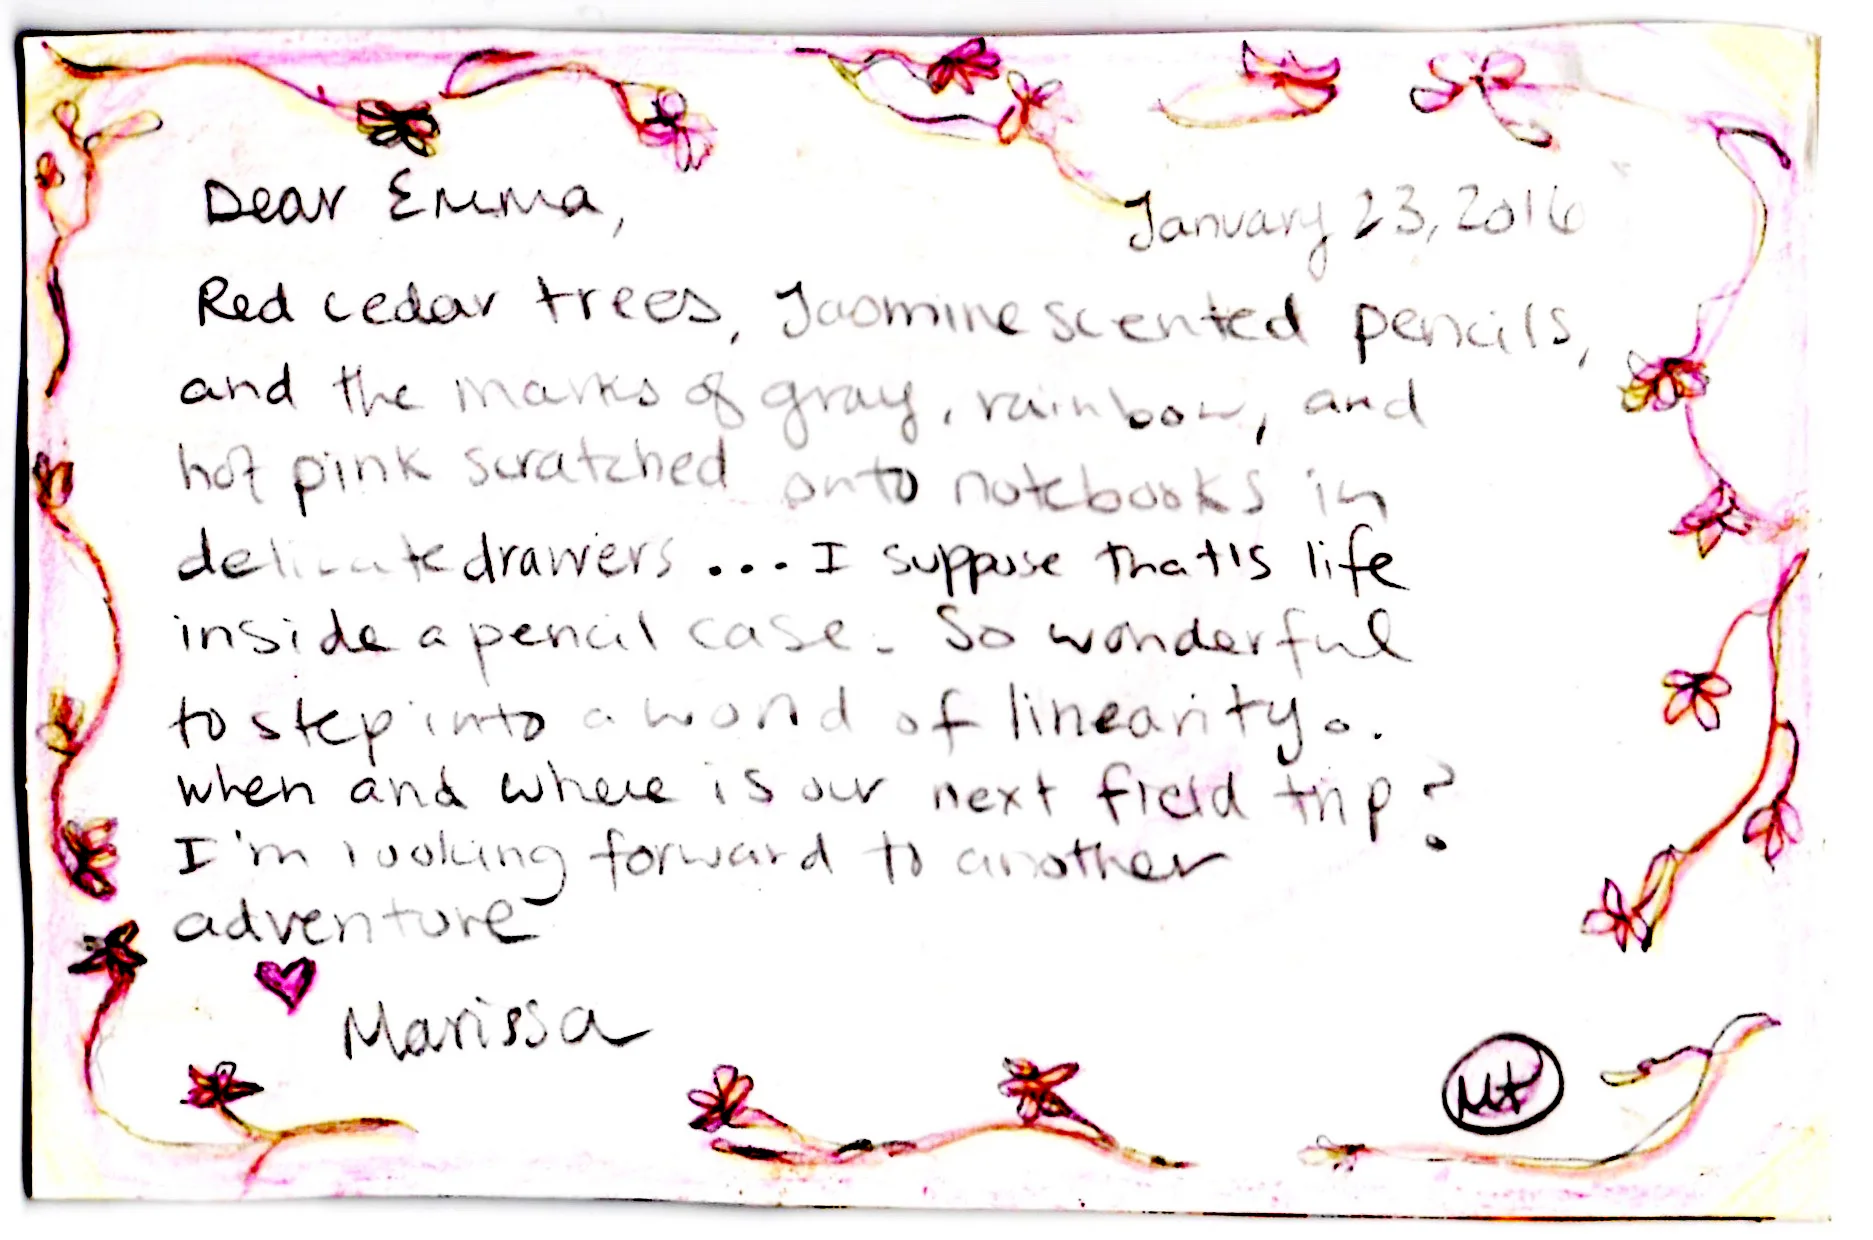 Dear Emma,
January 23, 2016
Red cedar trees, Jasmine scented pencils,
and the marks of gray, rainbow, and
hot pink scratched onto notebooks in
delicate drawers... I suppose that's life
inside a pencil case. So wonderful
to step into a world of linearity.
When and where is our next field trip?
I'm looking forward to another
adventure
Marissa